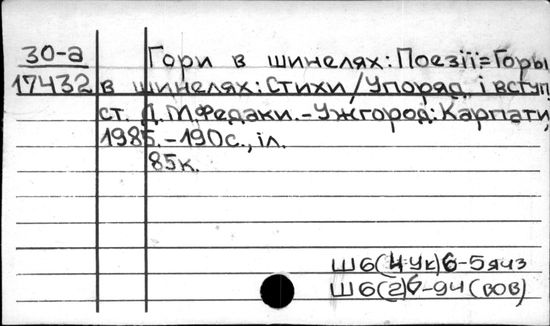 30-а Гори в шинелях: Поезії=Горы
17432 в шинелях: Стихи/Упоряд. і вступ
ст. Д.М.Федаки.-Ужгород: Карпати,
1985.-190с., іл.
85к.
Ш6(4Ук)6-5ячз
Ш6(2)6-94(ВОВ)